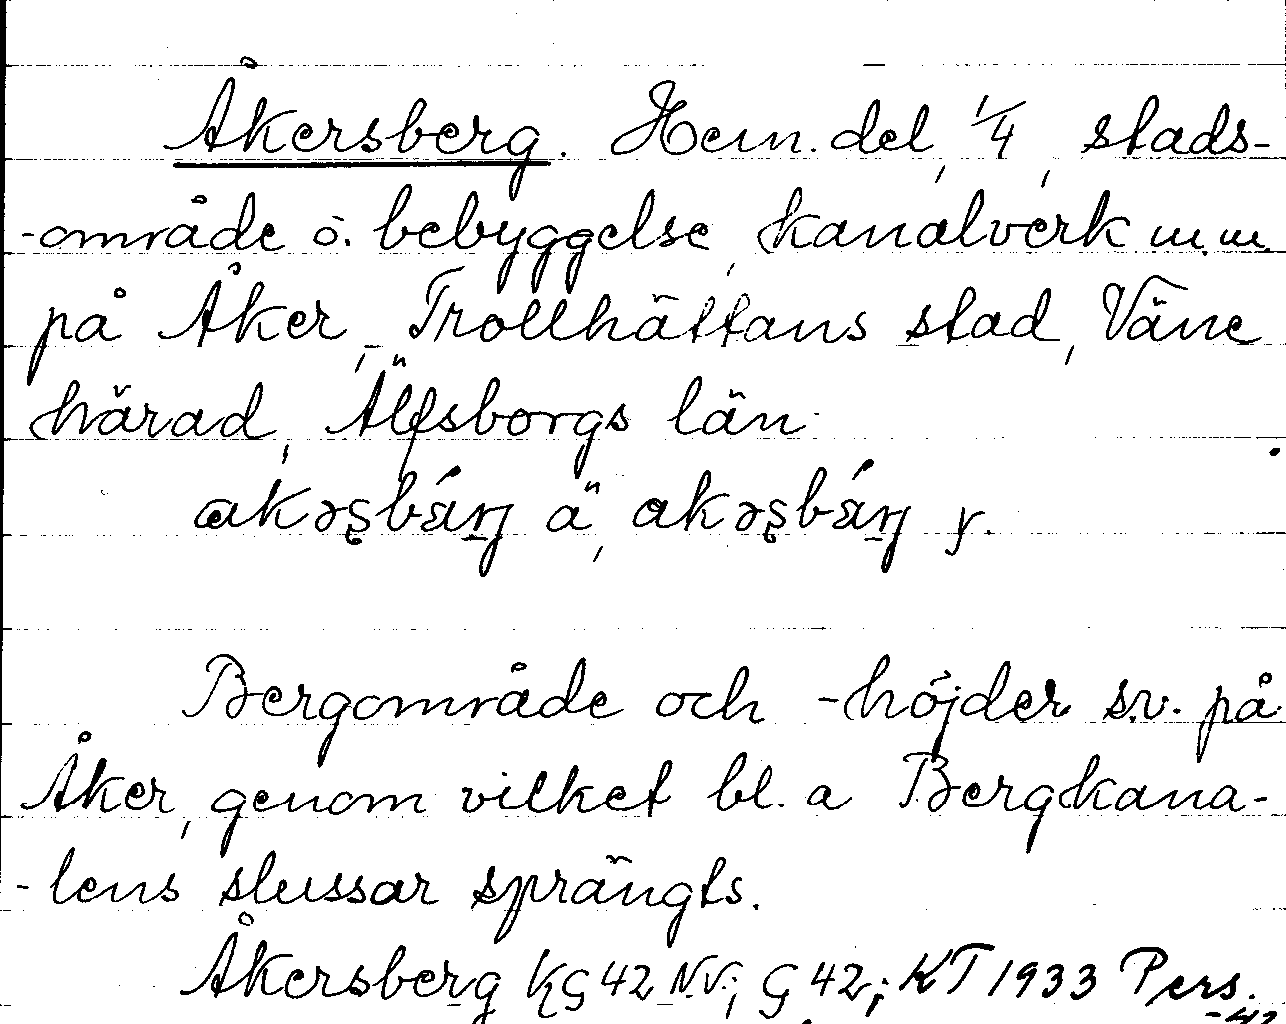 Åkersberg. Hem. del, 1/4, stads-
-område o. bebyggelse, kanalverk m.m.
på Åker, Trollhättans stad, Väne
härad, Älfsborgs län.
ä,
y.
Bergområde och -höjder s.v. på
Åker, genom vilket bl. a Bergkana-
-lens slussar sprängts.
Åkersberg KG 42 N.V.; G 42; KT 1933 Pers.
-42